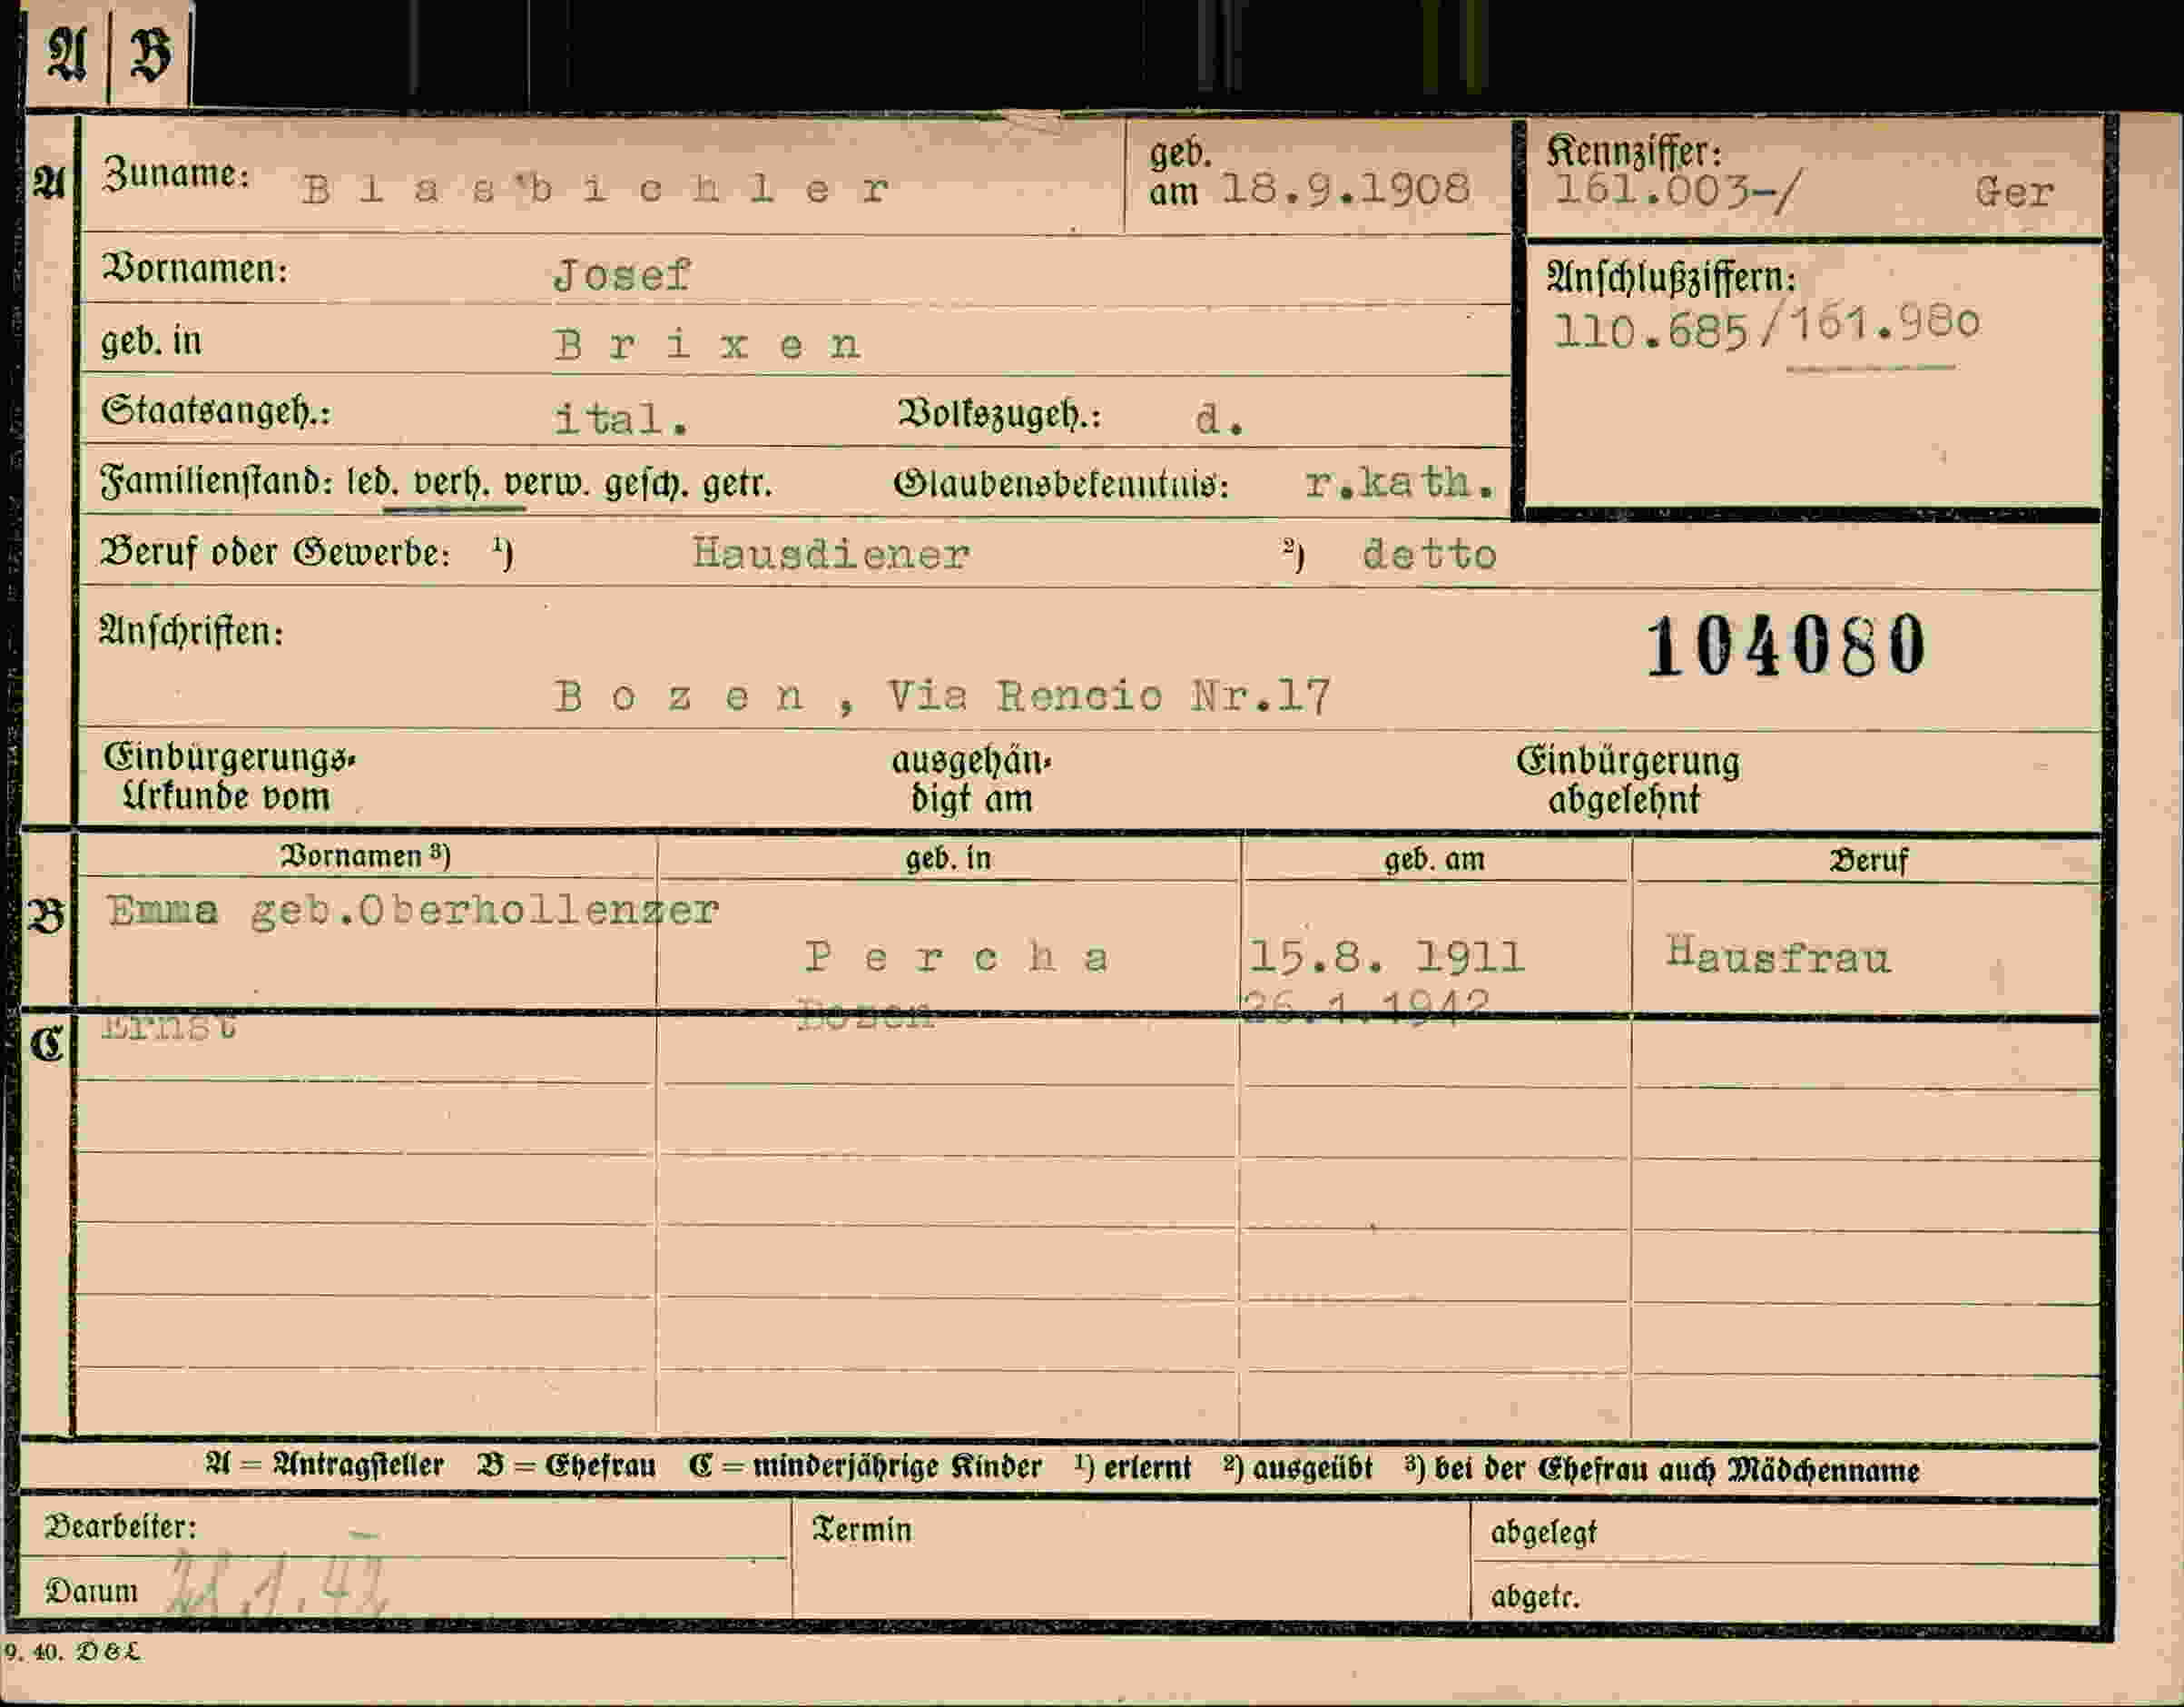 A B
A Zuname: Blasbichler geb. am 18.9.1908 Kennziffer: 161.003-/ Ger
Vornamen: Josef Anschlußziffern:
110.685/161.980
geb. in Brixen
Staatsangeh.: ital. Volkszugeh.: d.
Familienstand: led. verh. verw. gesch. getr. Glaubensbekenntnis: r.kath.
Beruf oder Gewerbe: ¹) Hausdiener ²) detto
Anschriften: 104080
Bozen, Via Rencio Nr.17
Einbürgerungs- ausgehän- Einbürgerung
Urkunde vom digt am abgelehnt
Vornamen ³) geb. in geb. am Beruf
B Emma geb.Oberhollenzer
Percha 15.8. 1911 Hausfrau
C Ernst Bozen 26.1.1942
A = Antragsteller B = Ehefrau C = minderjährige Kinder ¹) erlernt ²) ausgeübt ³) bei der Ehefrau auch Mädchenname
Bearbeiter: Termin abgelegt
Datum abgetr.
9. 40. D&L